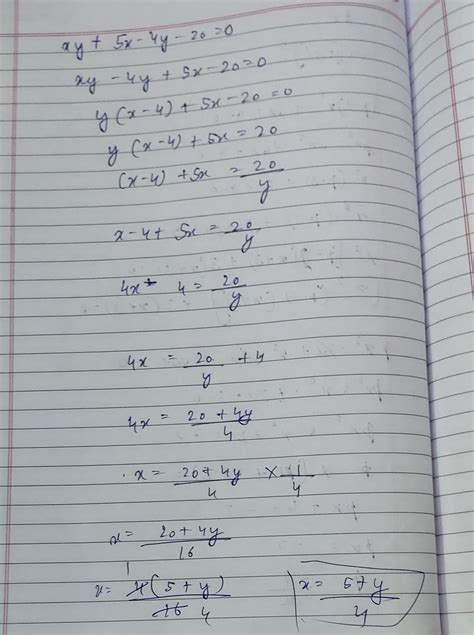 xy + 5x - 4y - 20 = 0
xy - 4y + 5x - 20 = 0
y (x-4) + 5x - 20 = 0
y (x-4) + 5x = 20
(x-4) + 5x = 20/y
x - 4 + 5x = 20/y
4x - 4 = 20/y
4x = 20/y + 4
4x = 20 + 4y/4
x = 20 + 4y/4 × 1/4
x = 20 + 4y/16
x = 4(5 + y)/16 4
x = 5 + y/4